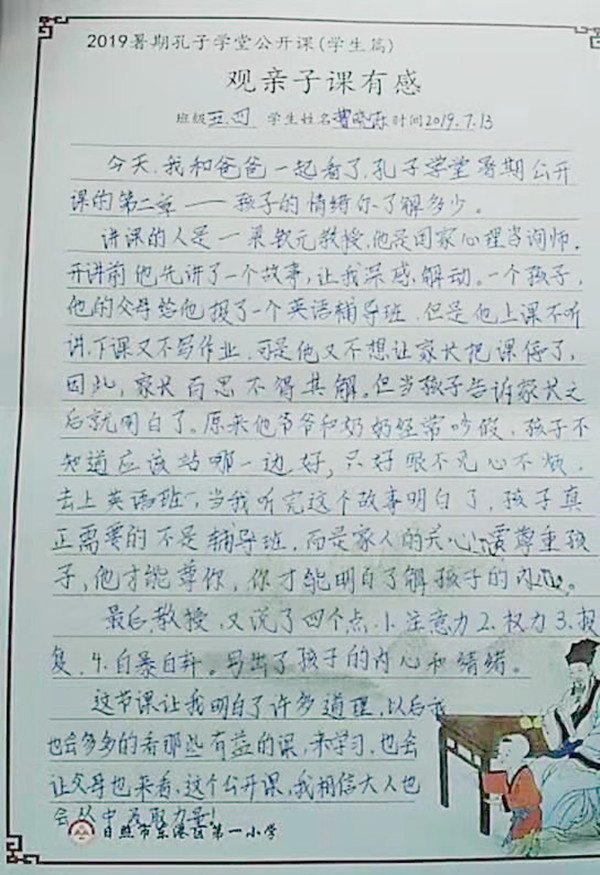 2019暑期孔子学堂公开课(学生篇)
观亲子课有感
班级五.四 学生姓名曹晓 时间2019.7.13
今天,我和爸爸一起看了,孔子学堂暑期公开
课的第二章——孩子的情绪你了解多少。
讲课的人是一 元教授,他是国家心理咨询师,
开讲前他先讲了一个故事,让我深感解动。一个孩子,
他的父母给他报了一个英语辅导班.但是他上课不听
讲.下课又不写作业,可是他又不想让家长把课停了,
因此,家长百思不得其解。但当孩子告诉家长之
后就明白了。原来他爷爷和奶奶经常吵假,孩子不
知道应该站哪一边好,只好眼不见心不烦,
去上英语班,当我听完这个故事明白了,孩子真
正需要的不是辅导班,而是家人的关心,需尊重孩
子,他才能尊你,你才能明白了解孩子的内 。
最后,教授,又说了四个点.1.注意力2.权力3.报
复.4.自暴自弃。写出了孩子的内心和情绪。
这节课让我明白了许多道理,以后我
也会多多的看那些有益的课,来学习,也会
让父母也来看,这个公开课,我相信大人也
会从中 取力量!
日照市东港区第一小学